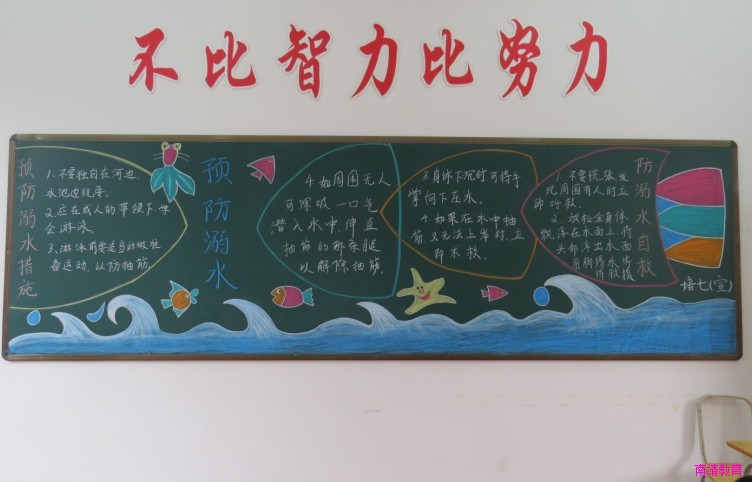 不比智力比努力
预防溺水措施
1.不要独自在河边、
水池边玩耍。
2.应在成人的带领下学
会游泳。
3.游泳前要适当的做准
备运动,以防抽筋。
预防溺水
4.如周围无人
可深吸一口气
潜入水中,伸直
抽筋的那条腿
以解除抽筋。
3.身体下沉时可将手
掌向下压水。
4.如果在水中抽
筋又无法上岸时,立
即求救。
防溺水自救
1.不要慌张,发
现周围有人时立
即呼救。
2.放松全身,体
飘浮在水面上,将
头部浮出水面
用脚踢水,等
待救援
培七(宣)
南靖教育